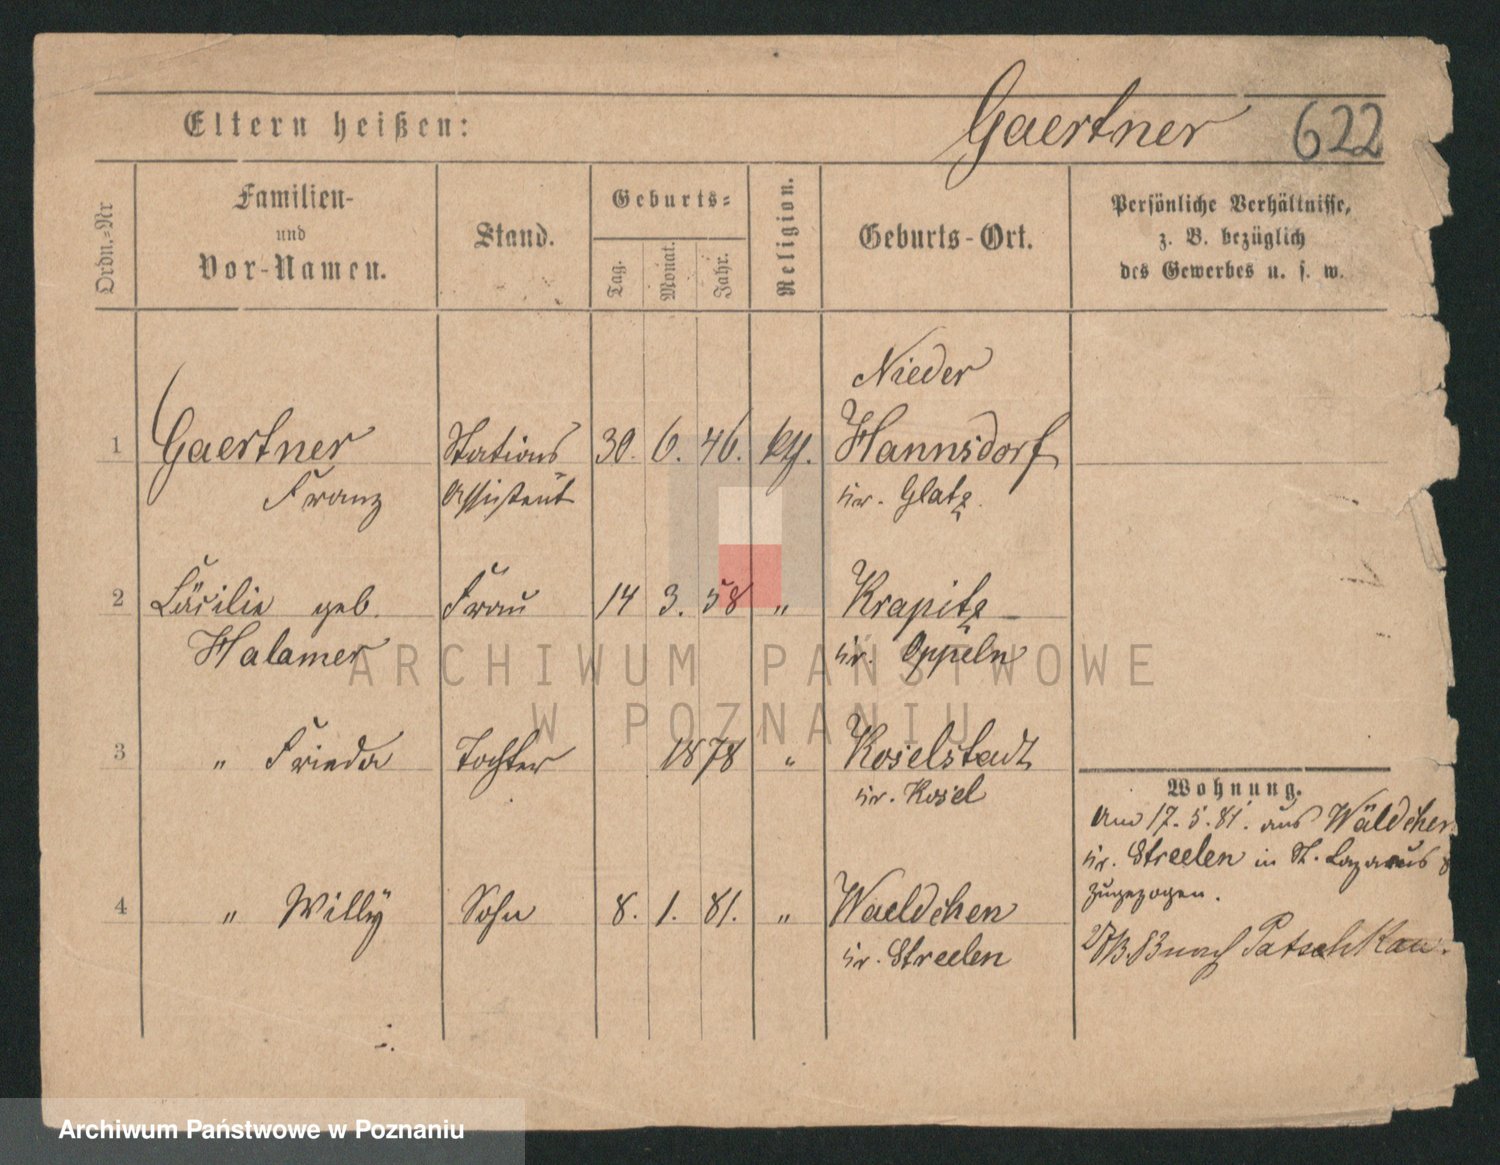 Eltern heißen:
Gaertner 622
Ordn.-Nr
Familien-
und
Vor-Namen.
Stand.
Geburts-
Tag.
Monat.
Jahr.
Religion.
Geburts-Ort.
Persönliche Verhältnisse,
z. B. bezüglich
des Gewerbes u. s. w.
Nieder
1 Gaertner Stations 30. 6. 46. kth. Hannsdorf
Franz Assistent Kr. Glatz
2 Cäcilie geb. Frau 14 3. 58 " Krapitz
Halamer Kr. Oppeln
3 " Frieda Tochter 1878 " Koselstadt
Kr. Kosel
4 " Willy Sohn 8. 1. 81. " Waeldchen
Kr. Strelen
Wohnung.
Am 17. 5. 81. aus Wäldchen
Kr. Strelen in St. Lazarus
zugezogen.
83 nach Patschkau.
ARCHIWUM PAŃSTWOWE
W POZNANIU
Archiwum Państwowe w Poznaniu